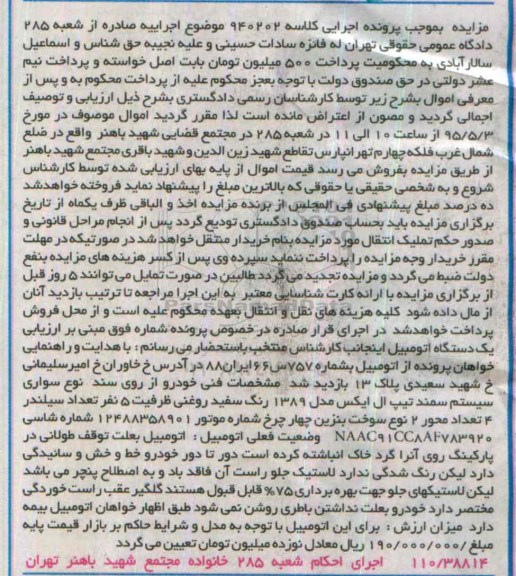 مزایده بموجب پرونده اجرایی کلاسه ۹۴۰۲۰۲ موضوع اجراییه صادره از شعبه ۲۸۵
دادگاه عمومی حقوقی تهران له فائزه سادات حسینی و علیه نجیبه حق شناس و اسماعیل
سالارآبادی به محکومیت پرداخت ۵۰۰ میلیون تومان بابت اصل خواسته و پرداخت نیم
عشر دولتی در حق صندوق دولت با توجه بعجز محکوم علیه از پرداخت محکوم به و پس از
معرفی اموال بشرح زیر توسط کارشناسان رسمی دادگستری بشرح ذیل ارزیابی و توصیف
اجمالی گردید و مصون از اعتراض مانده است لذا مقرر گردید اموال موصوف در مورخ
۹۵/۵/۳ از ساعت ۱۰ الی ۱۱ در شعبه ۲۸۵ در مجتمع قضایی شهید باهنر واقع در ضلع
شمال غرب فلکه چهارم تهرانپارس تقاطع شهید زین الدین و شهید باقری مجتمع شهید باهنر
از طریق مزایده بفروش می رسد قیمت اموال از پایه بهای ارزیابی شده توسط کارشناس
شروع و به شخصی حقیقی یا حقوقی که بالاترین مبلغ را پیشنهاد نماید فروخته خواهدشد
ده درصد مبلغ پیشنهادی فی المجلس از برنده مزایده اخذ و الباقی ظرف یکماه از تاریخ
برگزاری مزایده باید بحساب صندوق دادگستری تودیع گردد پس از انجام مراحل قانونی و
صدور حکم تملیک انتقال مورد مزایده بنام خریدار منتقل خواهد شد در صورتیکه در مهلت
مقرر خریدار وجه مزایده را پرداخت ننماید سپرده وی پس از کسر هزینه های مزایده بنفع
دولت ضبط می گردد و مزایده تجدید می گردد طالبین در صورت تمایل می توانند ۵ روز قبل
از برگزاری مزایده با ارائه کارت شناسایی معتبر به این اجرا مراجعه تا ترتیب بازدید آنان
از مال داده شود کلیه هزینه های نقل و انتقال بعهده محکوم علیه است و از محل فروش
پرداخت خواهدشد در اجرای قرار صادره در خصوص پرونده شماره فوق مبنی بر ارزیابی
یک دستگاه اتومبیل اینجانب کارشناس منتخب باستحضار می رسانم: با هدایت و راهنمایی
خواهان پرونده از اتومبیل بشماره ۷۵۷س۶۶ایران۸۸ در آدرس خ خاوران خ امیرسلیمانی
خ شهید سعیدی پلاک ۱۳ بازدید شد مشخصات فنی خودرو از روی سند نوع سواری
سیستم سمند تیپ ال ایکس مدل ۱۳۸۹ رنگ سفید روغنی ظرفیت ۵ نفر تعداد سیلندر
۴ تعداد محور ۲ نوع سوخت بنزین چهار چرخ شماره موتور ۱۲۴۸۸۳۵۸۹۰۱ شماره شاسی
NAAC۹۱CC۸AF۷۸۳۹۲۰ وضعیت فعلی اتومبیل : اتومبیل بعلت توقف طولانی در
پارکینگ روی آنرا گرد خاک انباشته کرده است دور تا دور خودرو خط و خش و سائیدگی
دارد لیکن رنگ شدگی ندارد لاستیک جلو راست آن فاقد باد و به اصطلاح پنچر می باشد
لیکن لاستیکهای جلو جهت بهره برداری ۷۵% قابل قبول هستند گلگیر عقب راست خوردگی
مختصر دارد خودرو بعلت نداشتن باطری روشن نمی شود طبق اظهار خواهان اتومبیل بیمه
دارد میزان ارزش : برای این اتومبیل با توجه به مدل و شرایط حاکم بر بازار قیمت پایه
مبلغ /۱۹۰/۰۰۰/۰۰۰ ریال معادل نوزده میلیون تومان تعیین می گردد
۱۱۰/۳۸۸۱۴ اجرای احکام شعبه ۲۸۵ خانواده مجتمع شهید باهنر تهران